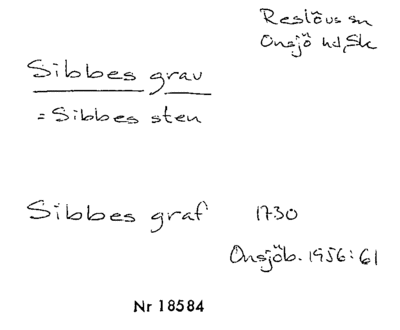 Reslövs sn
Onsjö hd, Sk
Sibbes grav
= Sibbes sten
Sibbes graf 1730
Onsjöb. 1956:61
Nr 18584